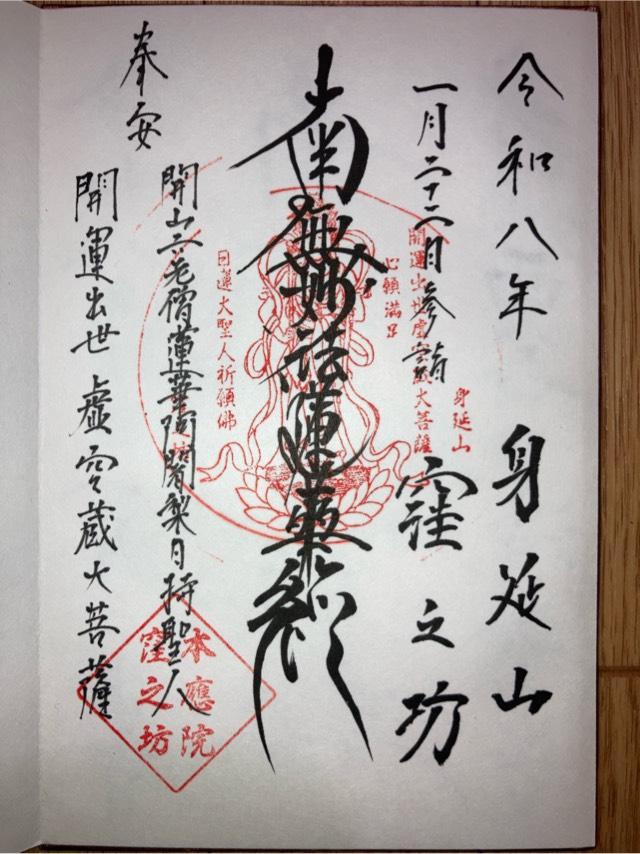 令和八年 身延山
一月二十二日参詣 窪之坊
南無妙法蓮華経
奉安
開山六老僧蓮華阿闍梨日持聖人
開運出世虚空蔵大菩薩
身延山
開運出世虚空蔵大菩薩
心願満足
日蓮大聖人祈願佛
本應院
窪之坊